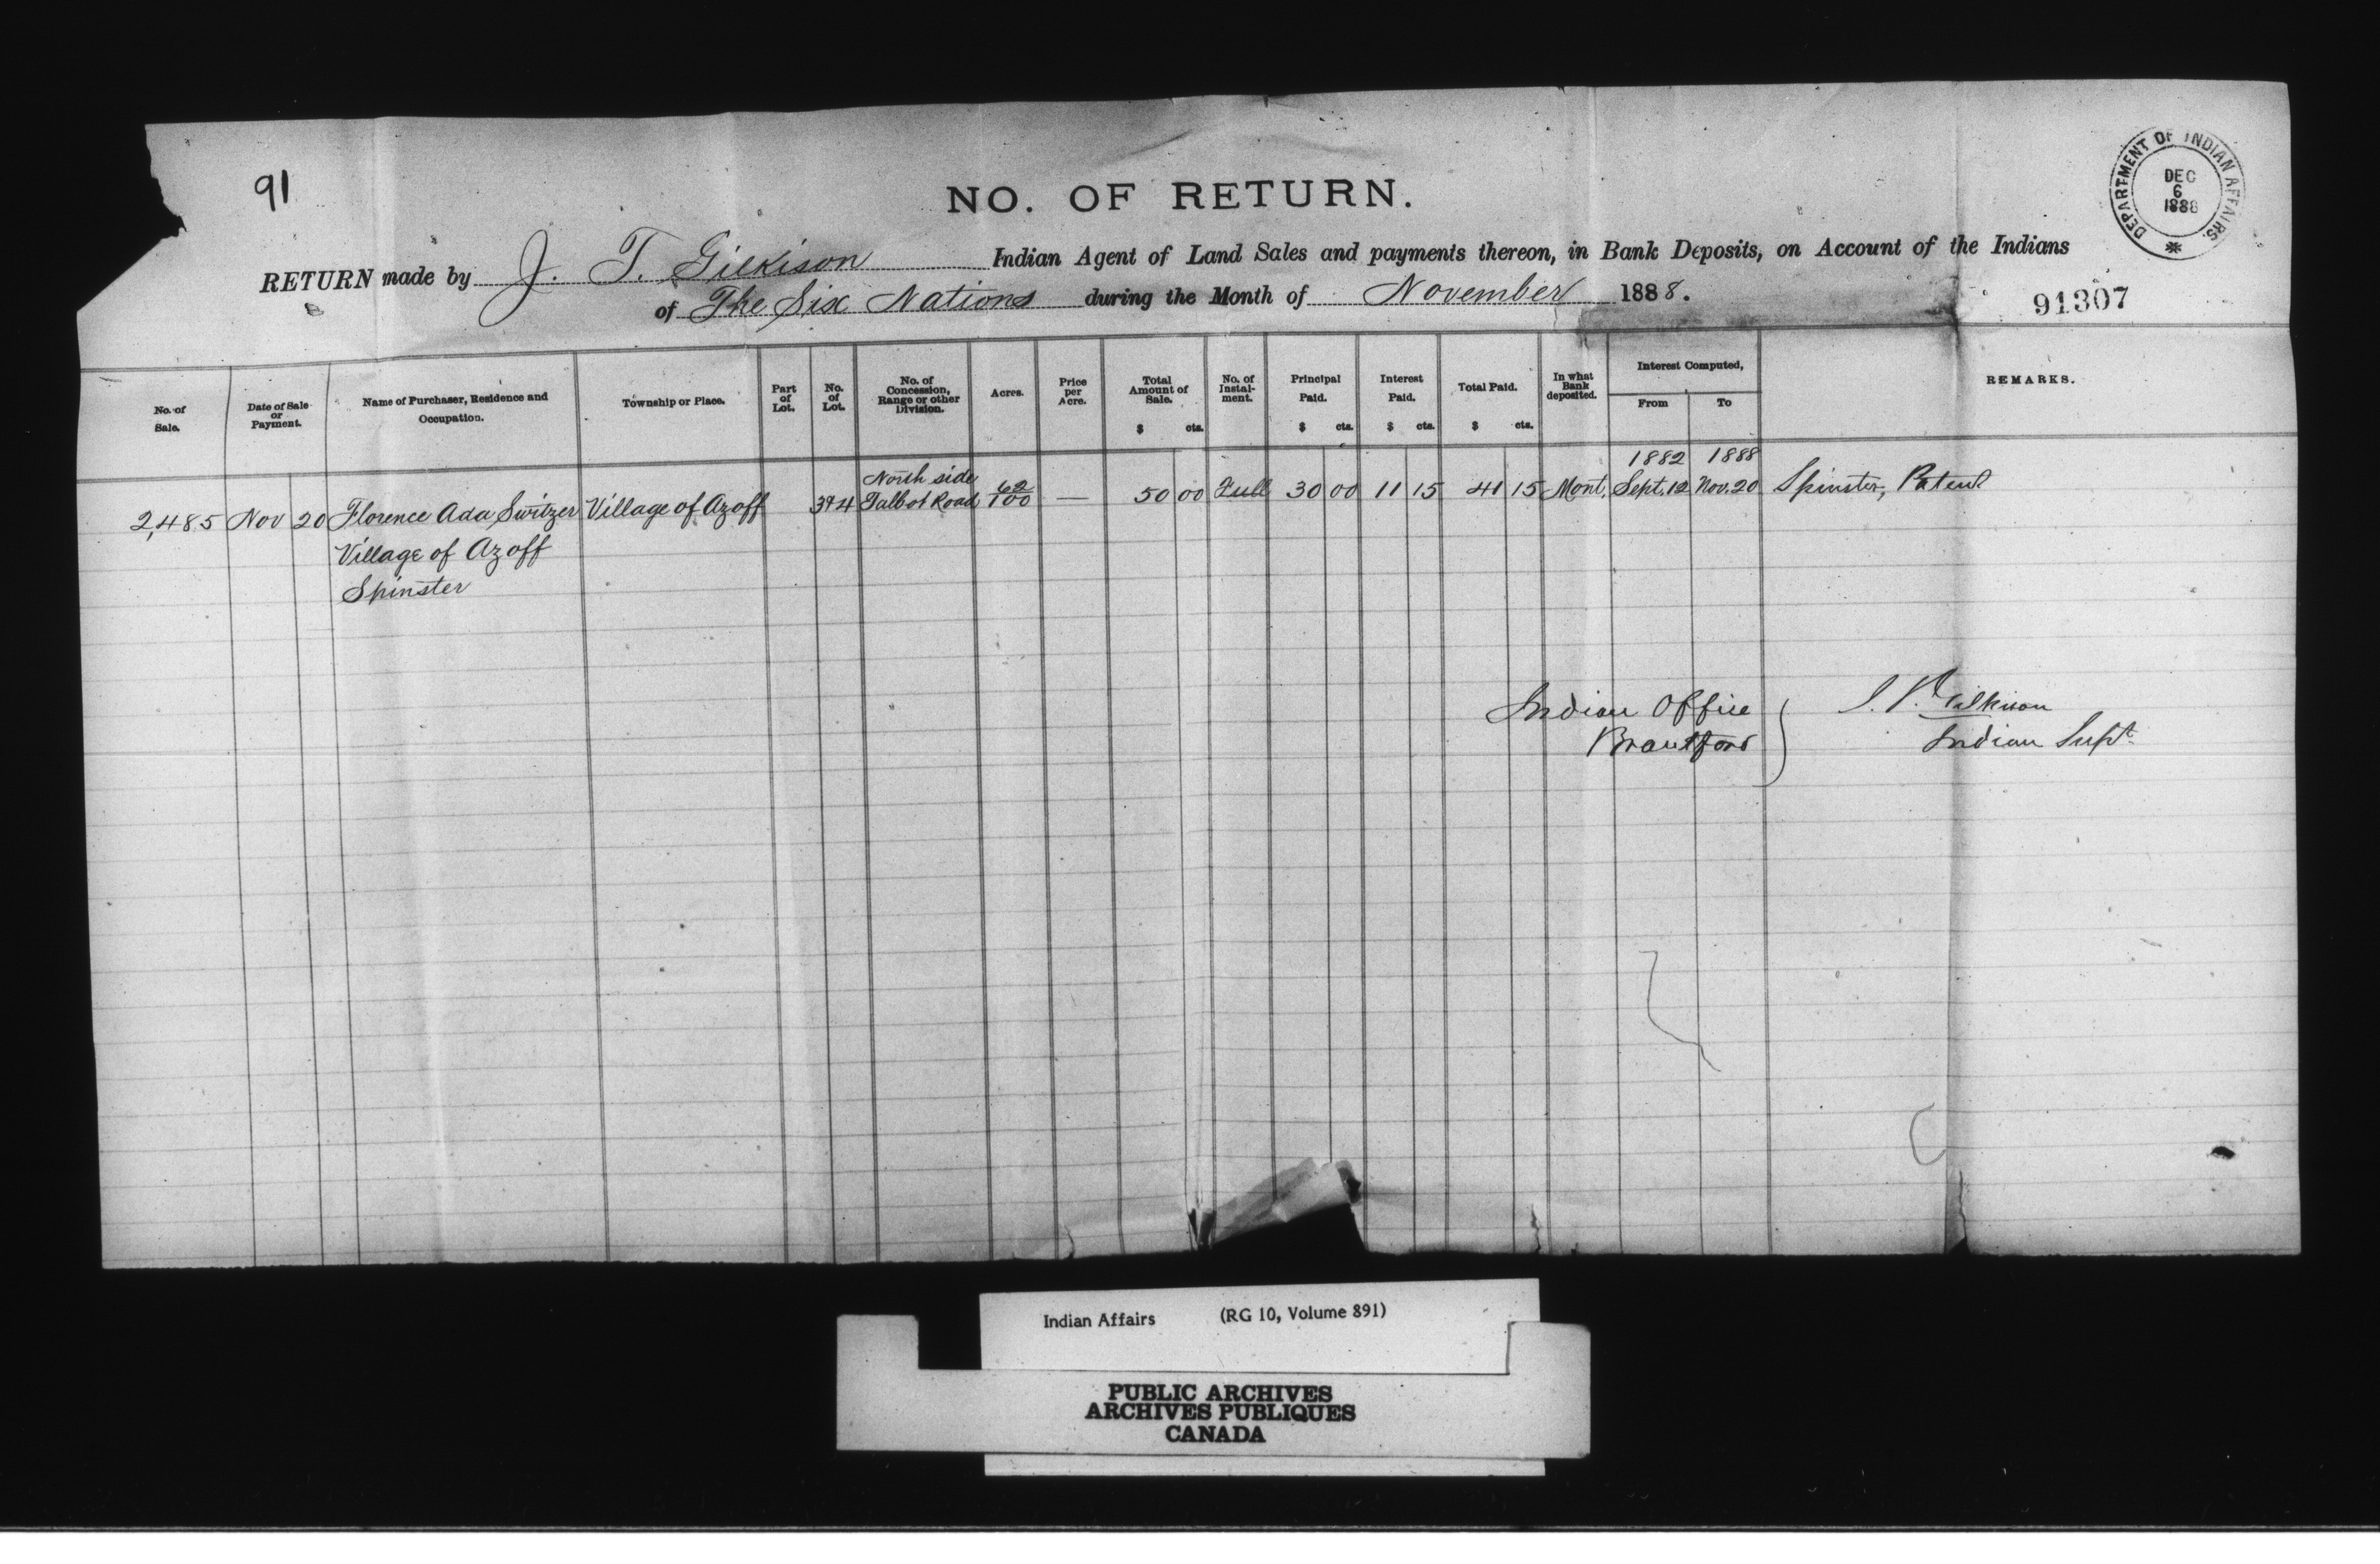 91
NO. OF RETURN.
DEPARTMENT OF INDIAN AFFAIRS.
DEC
6
1888
RETURN made by J. T. Gilkison Indian Agent of Land Sales and payments thereon, in Bank Deposits, on Account of the Indians
of The Six Nations during the Month of November 1888.
91307
No. of Sale.
Date of Sale or Payment.
Name of Purchaser, Residence and Occupation.
Township or Place.
Part of Lot.
No. of Lot.
No. of Concession, Range or other Division.
Acres.
Price per Acre.
Total Amount of Sale. $ cts.
No. of Instalment.
Principal Paid. $ cts.
Interest Paid. $ cts.
Total Paid. $ cts.
In what Bank deposited.
Interest Computed,
From To
REMARKS.
North side 1882 1888
2,485 Nov 20 Florence Ada Switzer Village of Azoff 3 & 4 Talbot Road 62/100 — 50 00 Full 30 00 11 15 41 15 Mont. Sept. 12 Nov. 20 Spinster, Patent
Village of Azoff
Spinster
Indian Office J. T. Gilkison
Brantford Indian Supt
Indian Affairs (RG 10, Volume 891)
PUBLIC ARCHIVES
ARCHIVES PUBLIQUES
CANADA